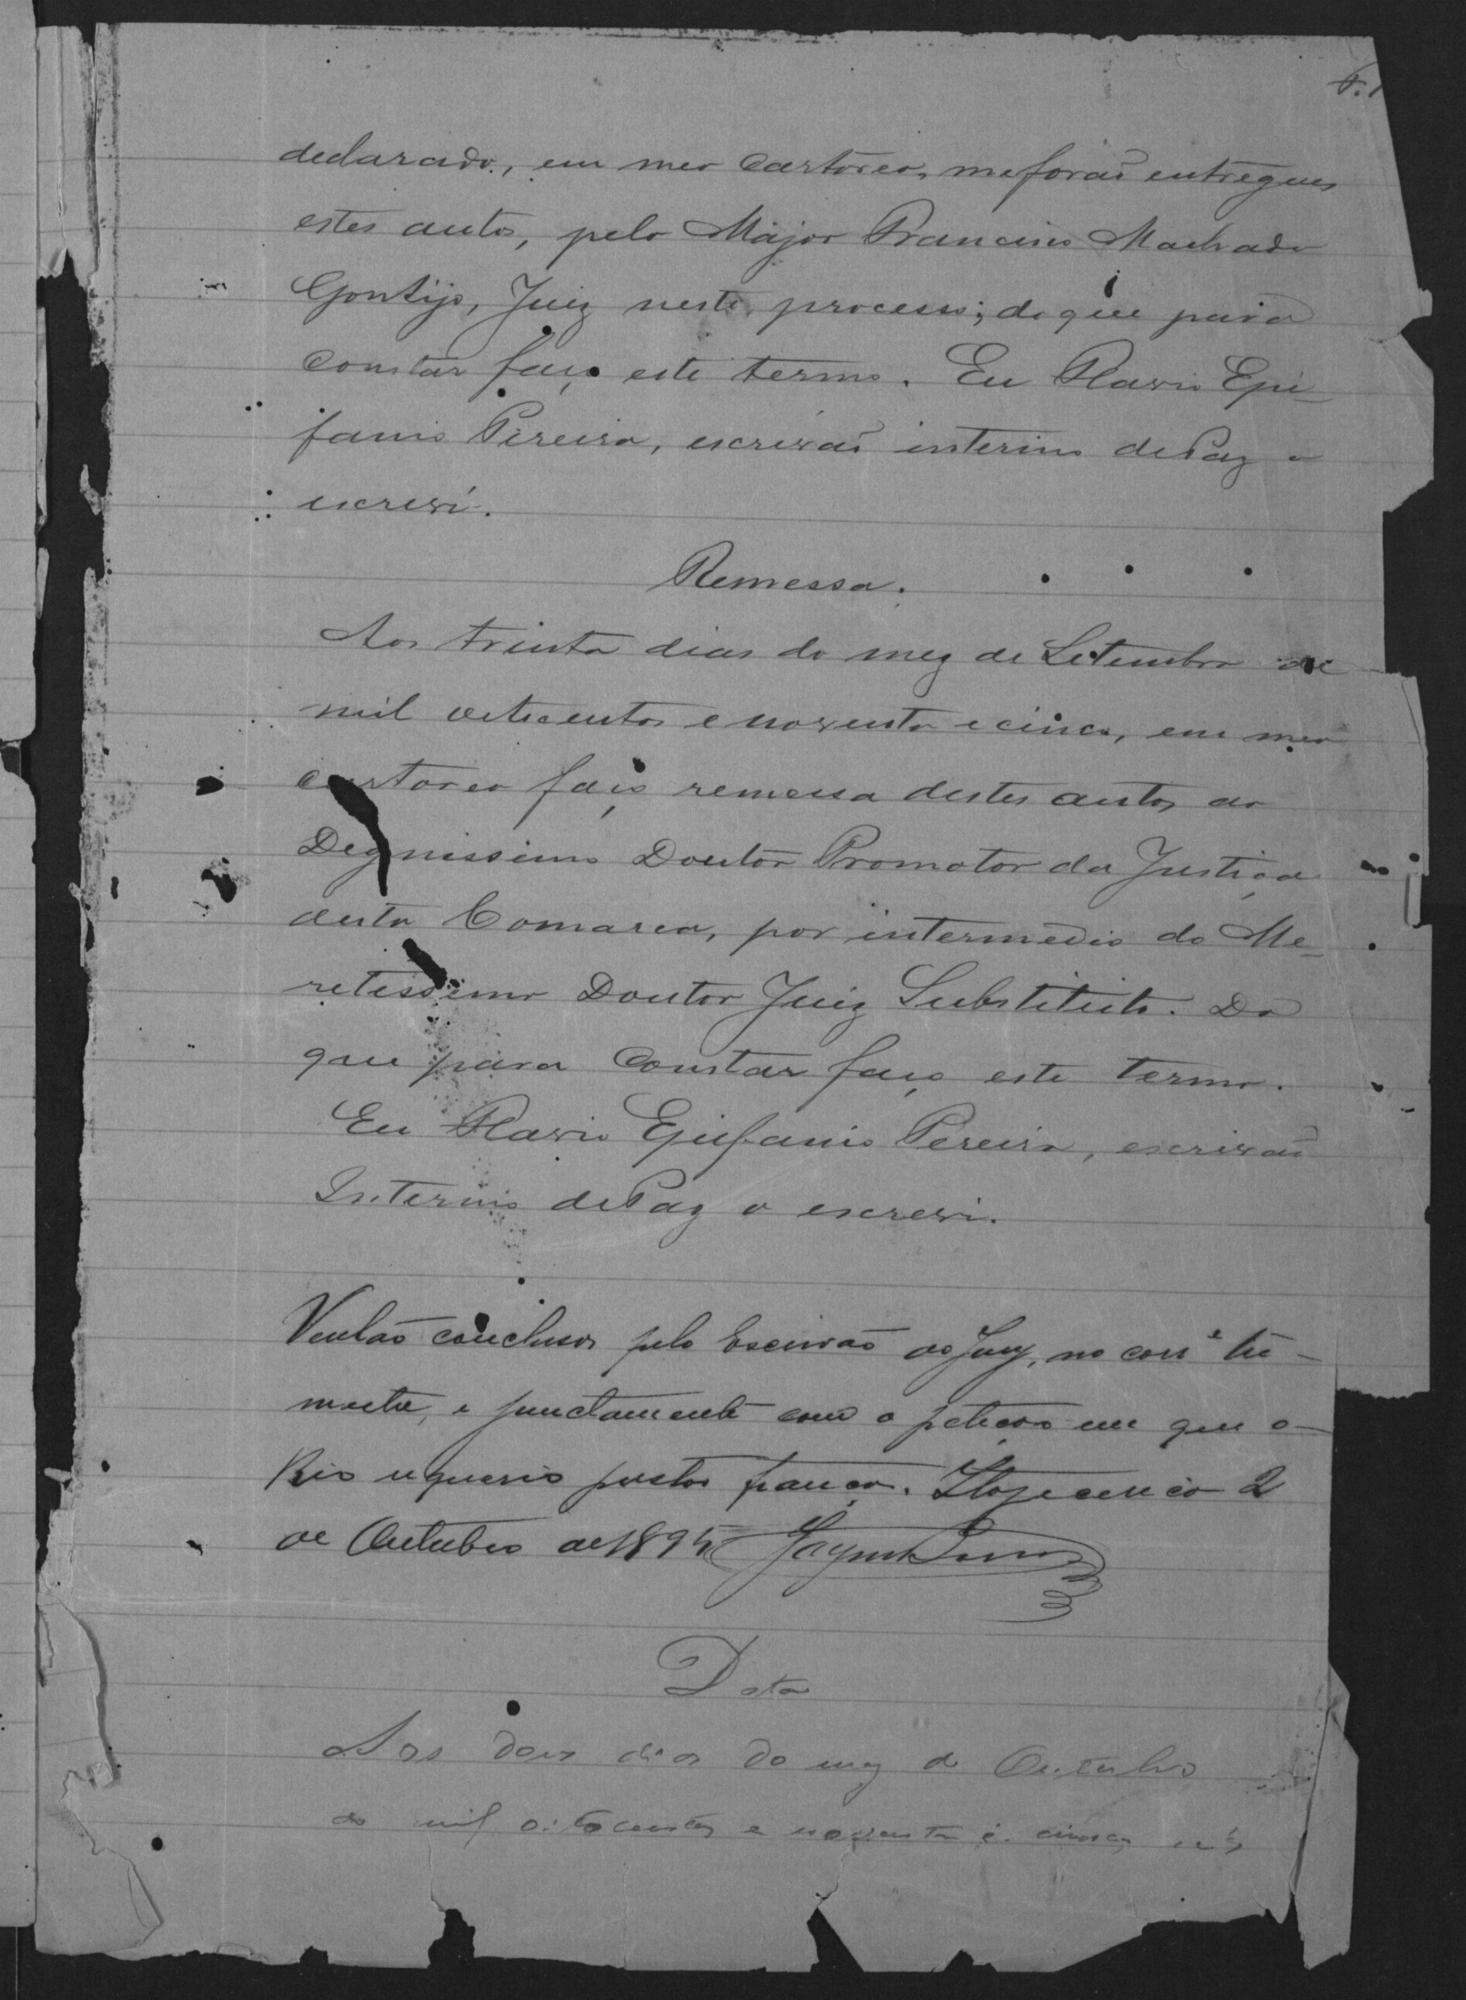 declarado, em meo cartoreo, me forão entregues
estes autos, pelo Major Francisco Machado
Gontijo, Juiz neste processo; do que para
constar faço este termo. Eu Flavio Epi-
fanio Pereira, escrivão interino de Paz o
escreví.
Remessa.
Aos trinta dias do mez de Setembro de
mil oitocentos e noventa e cinco, em meo
cartoreo faço remessa destes autos ao
Dignissimo Doutor Promotor da Justiça
desta Comarca, por intermedio do Me-
retissimo Doutor Juiz Substituto. Do
que para constar faço este termo.
Eu Flavio Epifanio Pereira, escrivão
Interino de Paz o escrevi.
Venhão conclusos pelo Escrivão do Jury, no corrᵉ tri-
mestre, e junctamente com a petição em que o
Réo requereo prestar fiança. Itapecerica 2
de Outubro de 1895
Data
Aos dois dias do mez de Outubro
de mil oitocentos e noventa e cinco,